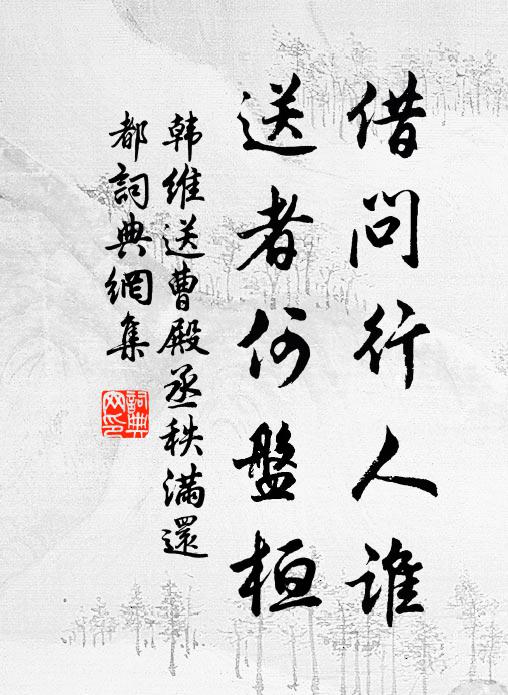 借问行人谁
送者何盤桓
韩维送曹殿丞秩满還
都詞典網集
詞典
网印